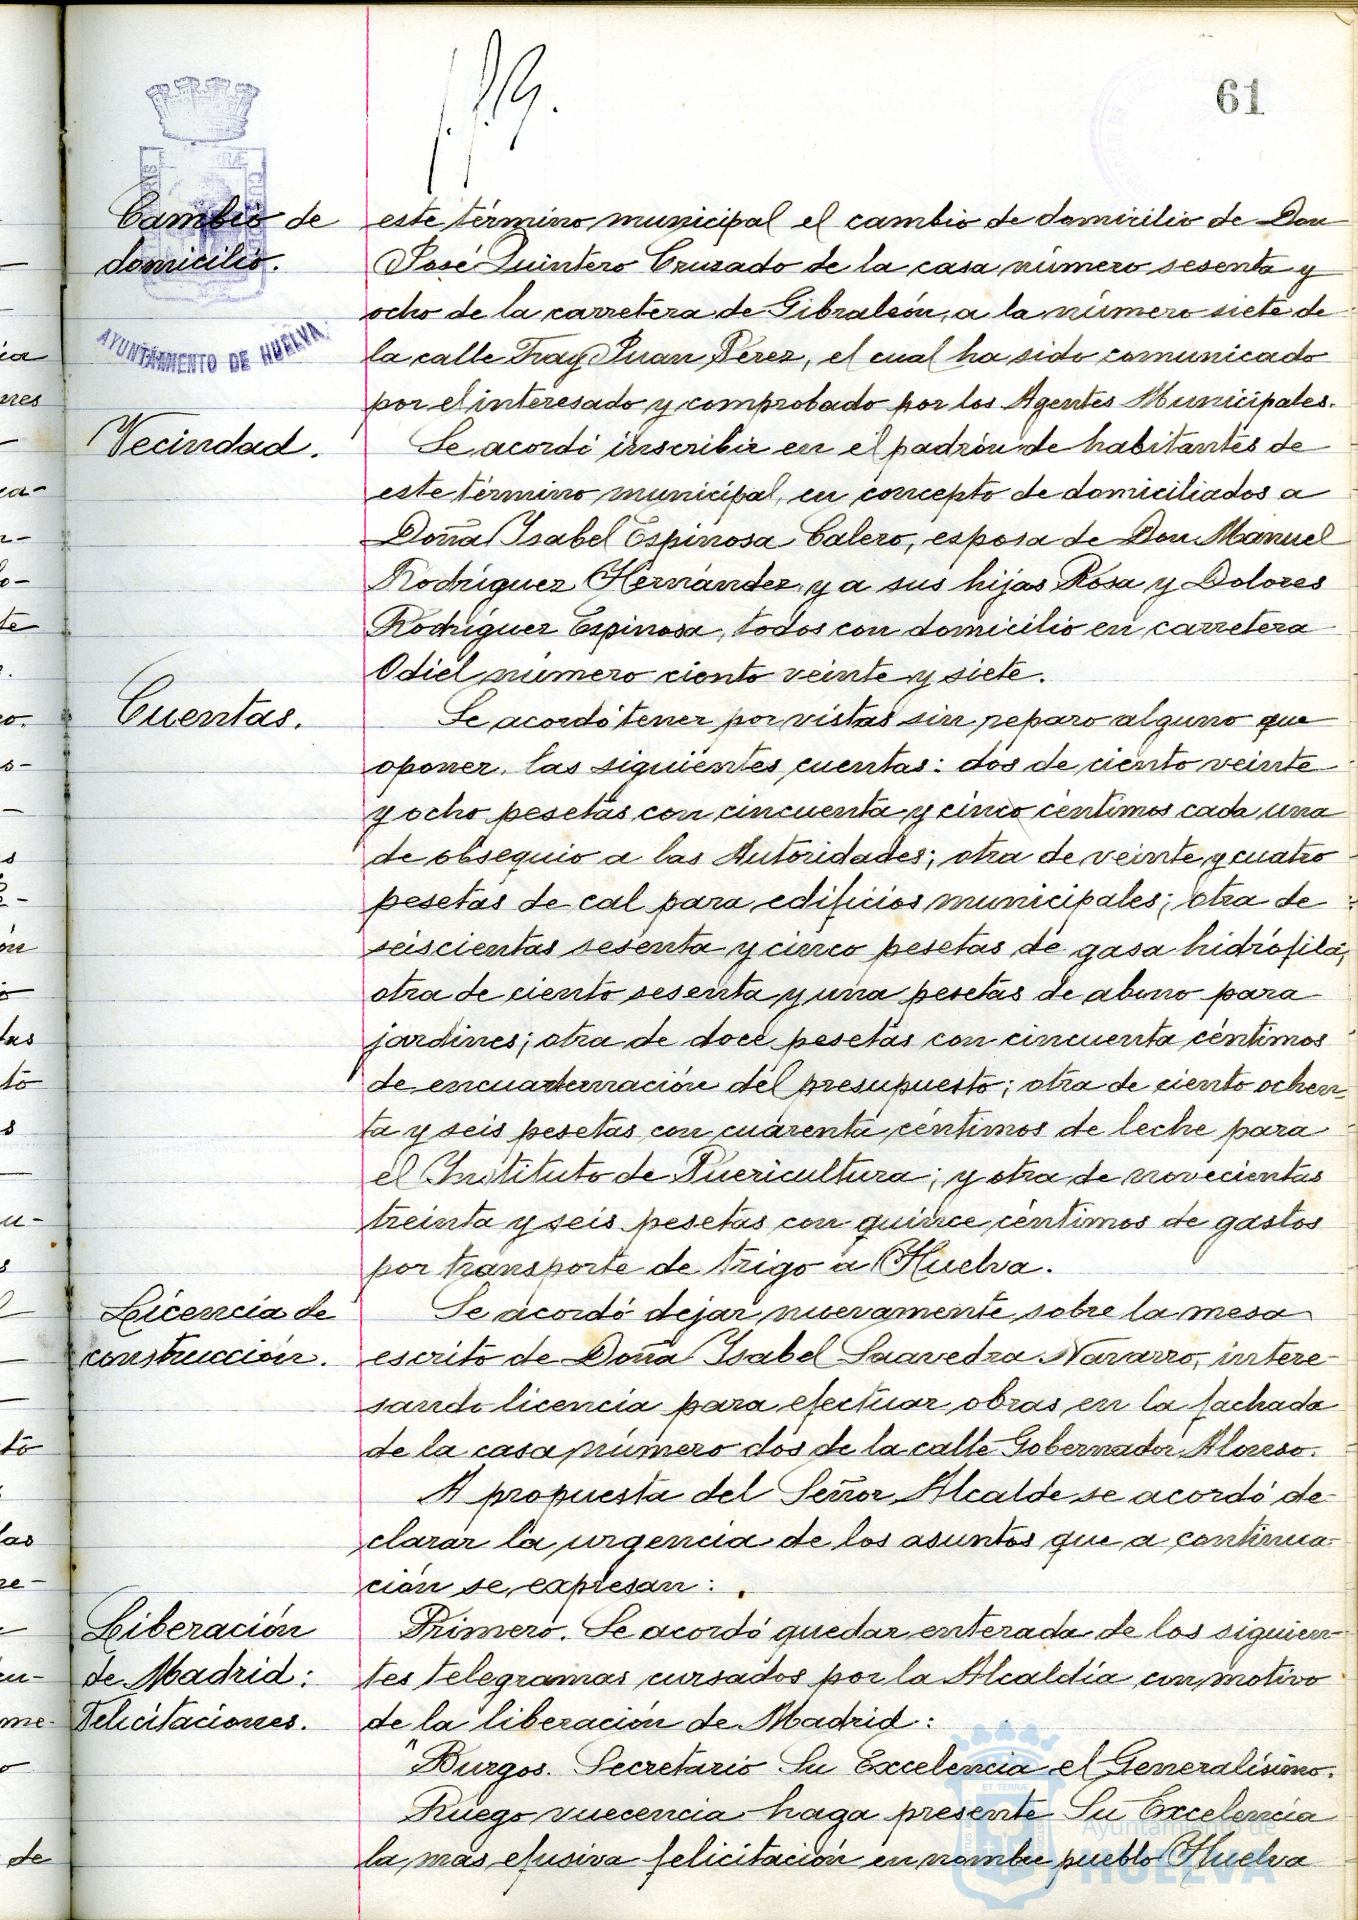 61
Cambio de
domicilio.
AYUNTAMIENTO DE HUELVA
este término municipal el cambio de domicilio de Don
José Quintero Cruzado de la casa número sesenta y
ocho de la carretera de Gibraleón, a la número siete de
la calle Fray Juan Pérez, el cual ha sido comunicado
por el interesado y comprobado por los Agentes Municipales.
Vecindad.
Se acordó inscribir en el padrón de habitantes de
este término municipal, en concepto de domiciliados a
Doña Isabel Espinosa Calero, esposa de Don Manuel
Rodríguez Hernández, y a sus hijas Rosa y Dolores
Rodríguez Espinosa, todos con domicilio en carretera
Odiel número ciento veinte y siete.
Cuentas.
Se acordó tener por vistas sin reparo alguno que
oponer, las siguientes cuentas: dos de ciento veinte
y ocho pesetas con cincuenta y cinco céntimos cada una
de obsequio a las Autoridades; otra de veinte y cuatro
pesetas de cal para edificios municipales; otra de
seiscientas sesenta y cinco pesetas de gasa hidrófila;
otra de ciento sesenta y una pesetas de abono para
jardines; otra de doce pesetas con cincuenta céntimos
de encuadernación del presupuesto; otra de ciento ochen-
ta y seis pesetas con cuarenta céntimos de leche para
el Instituto de Puericultura; y otra de novecientas
treinta y seis pesetas con quince céntimos de gastos
por transporte de trigo a Huelva.
Licencia de
construcción.
Se acordó dejar nuevamente sobre la mesa
escrito de Doña Isabel Saavedra Navarro, intere-
sando licencia para efectuar obras en la fachada
de la casa número dos de la calle Gobernador Alonso.
A propuesta del Señor Alcalde se acordó de-
clarar la urgencia de los asuntos que a continua-
ción se expresan:
Liberación
de Madrid:
Felicitaciones.
Primero. Se acordó quedar enterada de los siguien-
tes telegramas cursados por la Alcaldía con motivo
de la liberación de Madrid:
"Burgos. Secretario Su Excelencia el Generalísimo.
Ruego vuecencia haga presente Su Excelencia
la mas efusiva felicitación en nombre pueblo Huelva
Ayuntamiento de
HUELVA